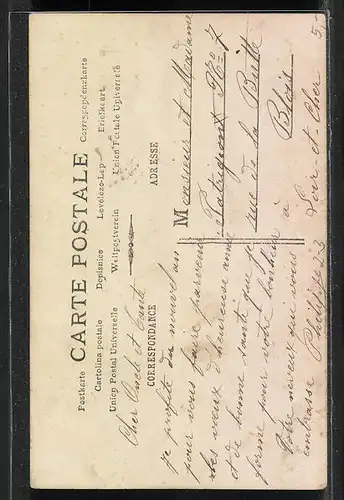 CARTE POSTALE
Postkarte
Correspondenzkarte
Cartolina postale
Dopisnice
Levelezo-Lap
Briefkaart
Union Postal Universelle
Weltpostverein
Union Postale Universelle
CORRESPONDANCE
ADRESSE
Cher Oncle et tante
je profite du nouvel an
pour vous faire parvenir
mes vœux d'heureuse année
et de bonne santé que je
forme pour votre bonheur
Votre neveux qui vous
embrasse
Monsieur et Madame
No 7
rue de la Butte
à Blois
Loir-et-Cher